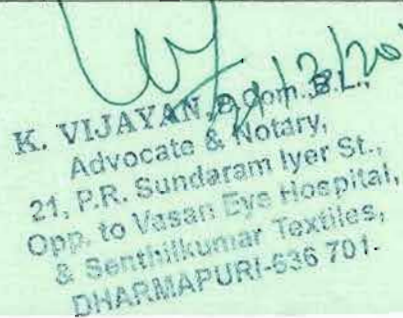 K. VIJAYAN, B.Com. B.L.,
Advocate & Notary,
21, P.R. Sundaram Iyer St.,
Opp. to Vasan Eye Hospital,
& Senthilkumar Textiles,
DHARMAPURI-636 701.